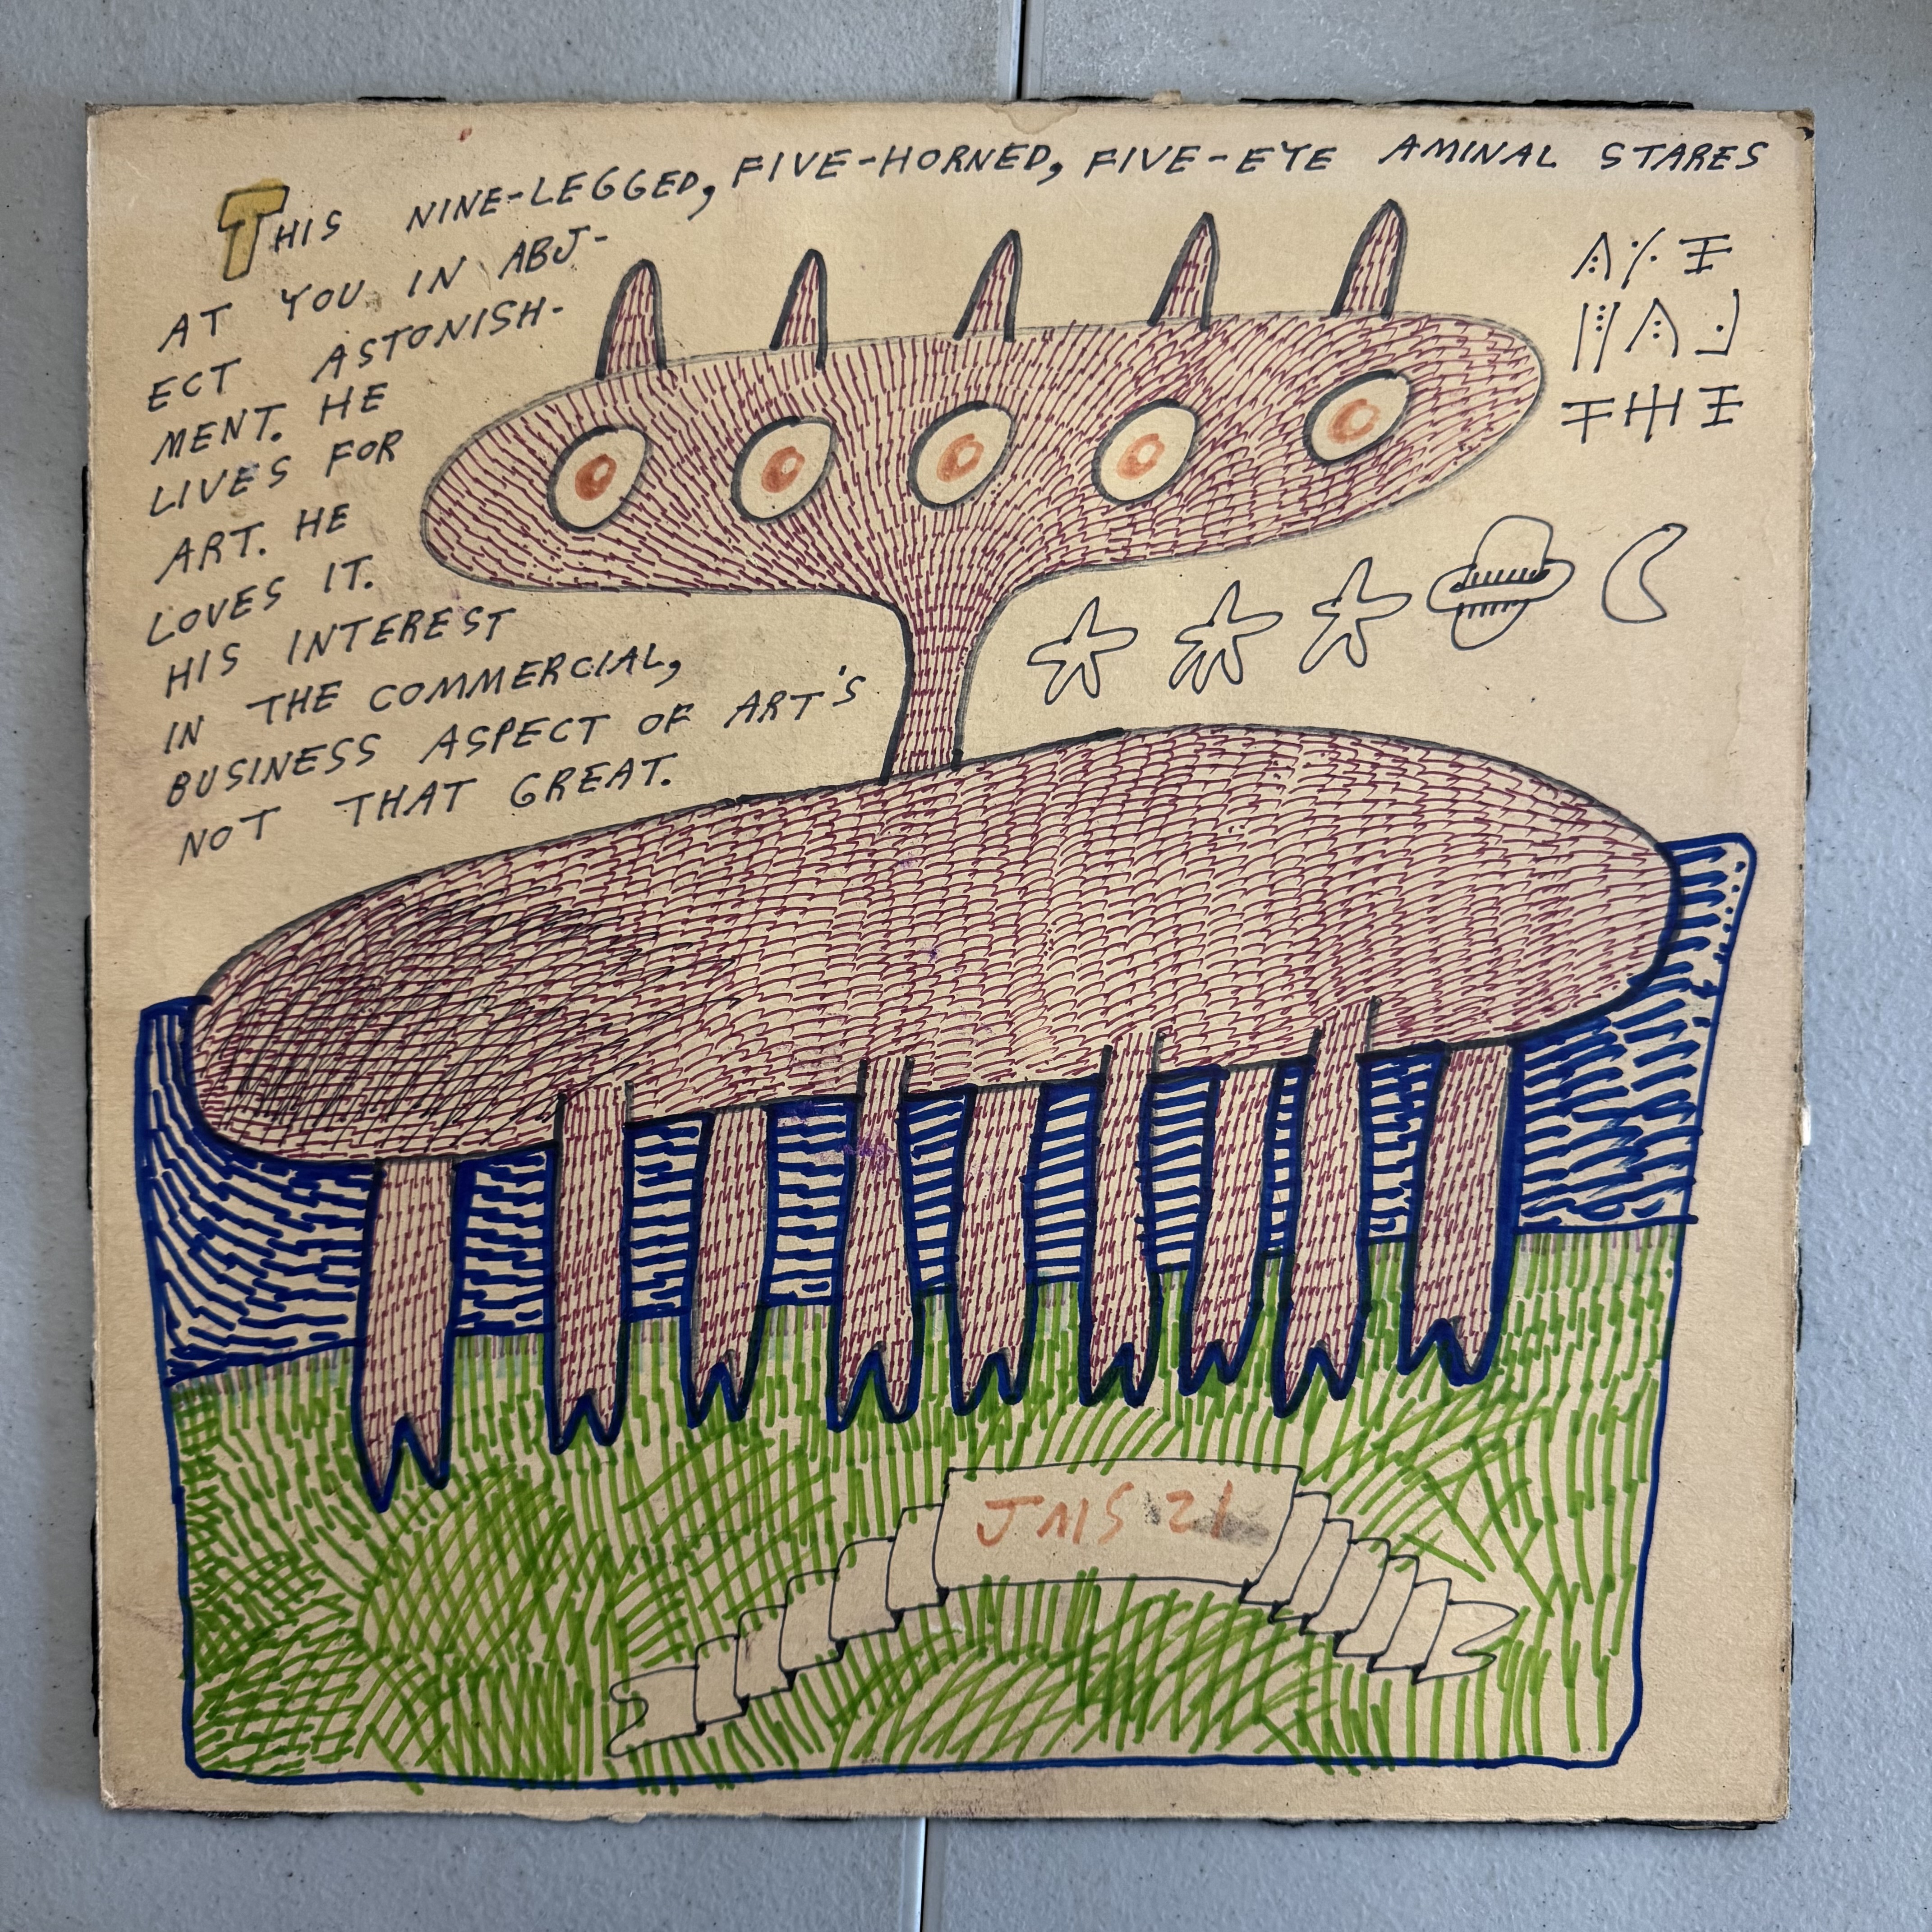 THIS NINE-LEGGED, FIVE-HORNED, FIVE-EYE AMINAL STARES
AT YOU IN ABJ-
ECT ASTONISH-
MENT. HE
LIVES FOR
ART. HE
LOVES IT.
HIS INTEREST
IN THE COMMERCIAL,
BUSINESS ASPECT OF ART'S
NOT THAT GREAT.
JMS 21